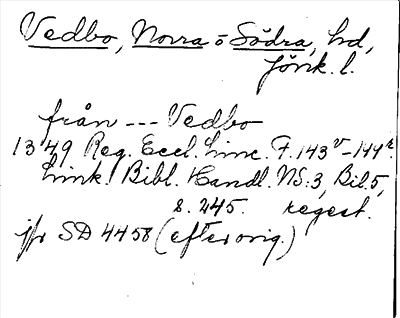 Vedbo, Norra o Södra, hd,
Jönk. l.
från --- Vedbo
1349 Reg. Eccl. Linc. F. 143v-144r.
Link. Bibl. Handl. NS:3, Bil. 5,
s. 245. regest.
jfr SD 4458 (efter orig.)